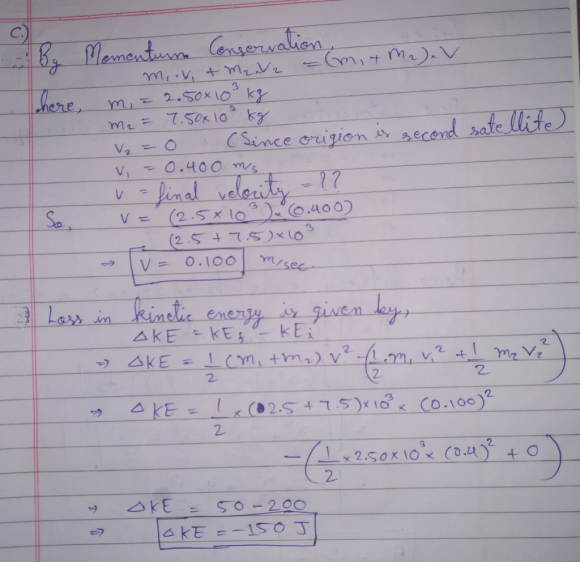 C)
∴ By Momentum Conservation,
m₁.v₁ + m₂.v₂ = (m₁ + m₂).V
here, m₁ = 2.50×10³ kg
m₂ = 7.50×10³ kg
V₂ = 0 (Since origion is second satellite)
V₁ = 0.400 m/s
V = final velocity = ??
So, V = (2.5 × 10³)×(0.400) / (2.5 + 7.5)×10³
⇒ V = 0.100 m/sec.
⇒ Loss in kinetic energy is given by,
ΔKE = KE𝒻 − KEᵢ
⇒ ΔKE = 1/2 (m₁ + m₂) V² − (1/2 . m₁ V₁² + 1/2 m₂ V₂²)
⇒ ΔKE = 1/2 × (2.5 + 7.5)×10³ × (0.100)²
− (1/2 × 2.50×10³ × (0.4)² + 0)
⇒ ΔKE = 50 − 200
⇒ ΔKE = −150 J